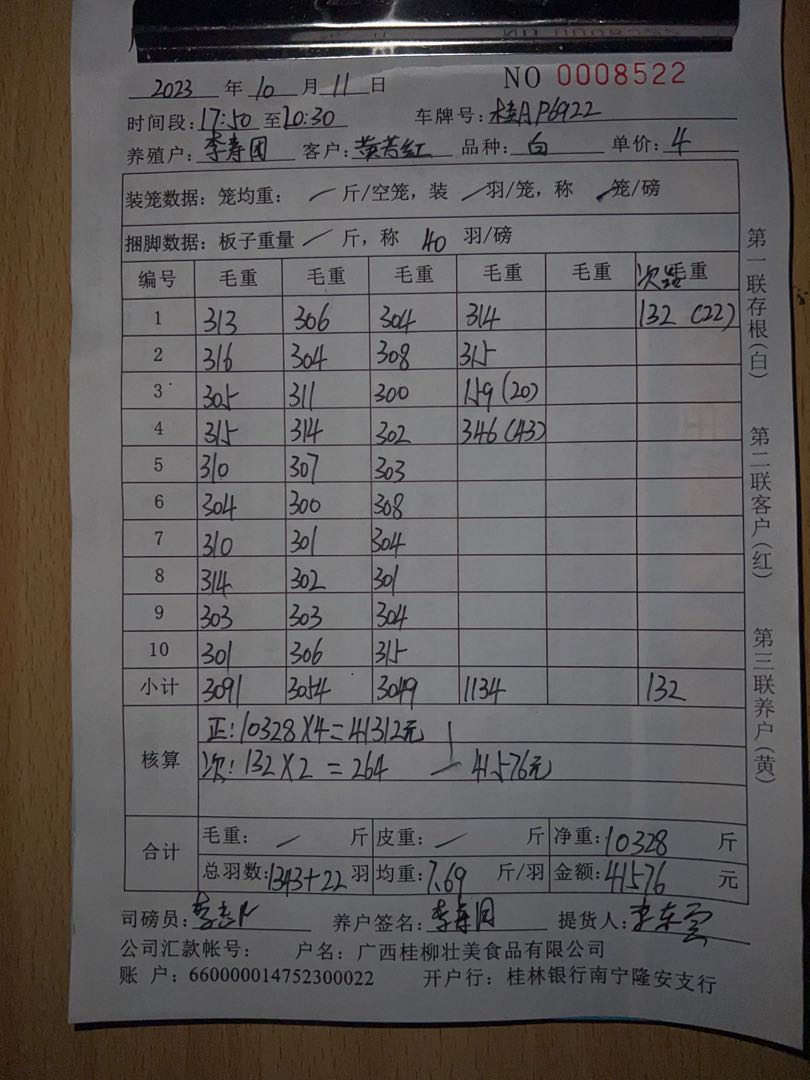 2023 年 10 月 11 日 NO 0008522
时间段: 17:50 至 20:30 车牌号: 桂AP6922
养殖户: 李寿团 客户: 红 品种: 白 单价: 4
装笼数据: 笼均重: / 斤/空笼, 装 / 羽/笼, 称 / 笼/磅
捆脚数据: 板子重量 / 斤, 称 40 羽/磅
编号 毛重 毛重 毛重 毛重 毛重 次品 毛重
1 313 306 304 314 132 (22)
2 316 304 308 315
3 305 311 300 159 (20)
4 315 314 302 346 (43)
5 310 307 303
6 304 300 308
7 310 301 304
8 314 302 301
9 303 303 304
10 301 306 315
小计 3091 3054 3049 1134 132
核算 正: 10328×4=41312元
次: 132×2=264 — 41576元
合计 毛重: / 斤 皮重: / 斤 净重: 10328 斤
总羽数: 1343+22 羽 均重: 7.69 斤/羽 金额: 41576 元
司磅员: 李 养户签名: 李寿团 提货人:
公司汇款帐号: 户名: 广西桂柳壮美食品有限公司
账 户: 660000014752300022 开户行: 桂林银行南宁隆安支行
第一联存根(白) 第二联客户(红) 第三联养户(黄)